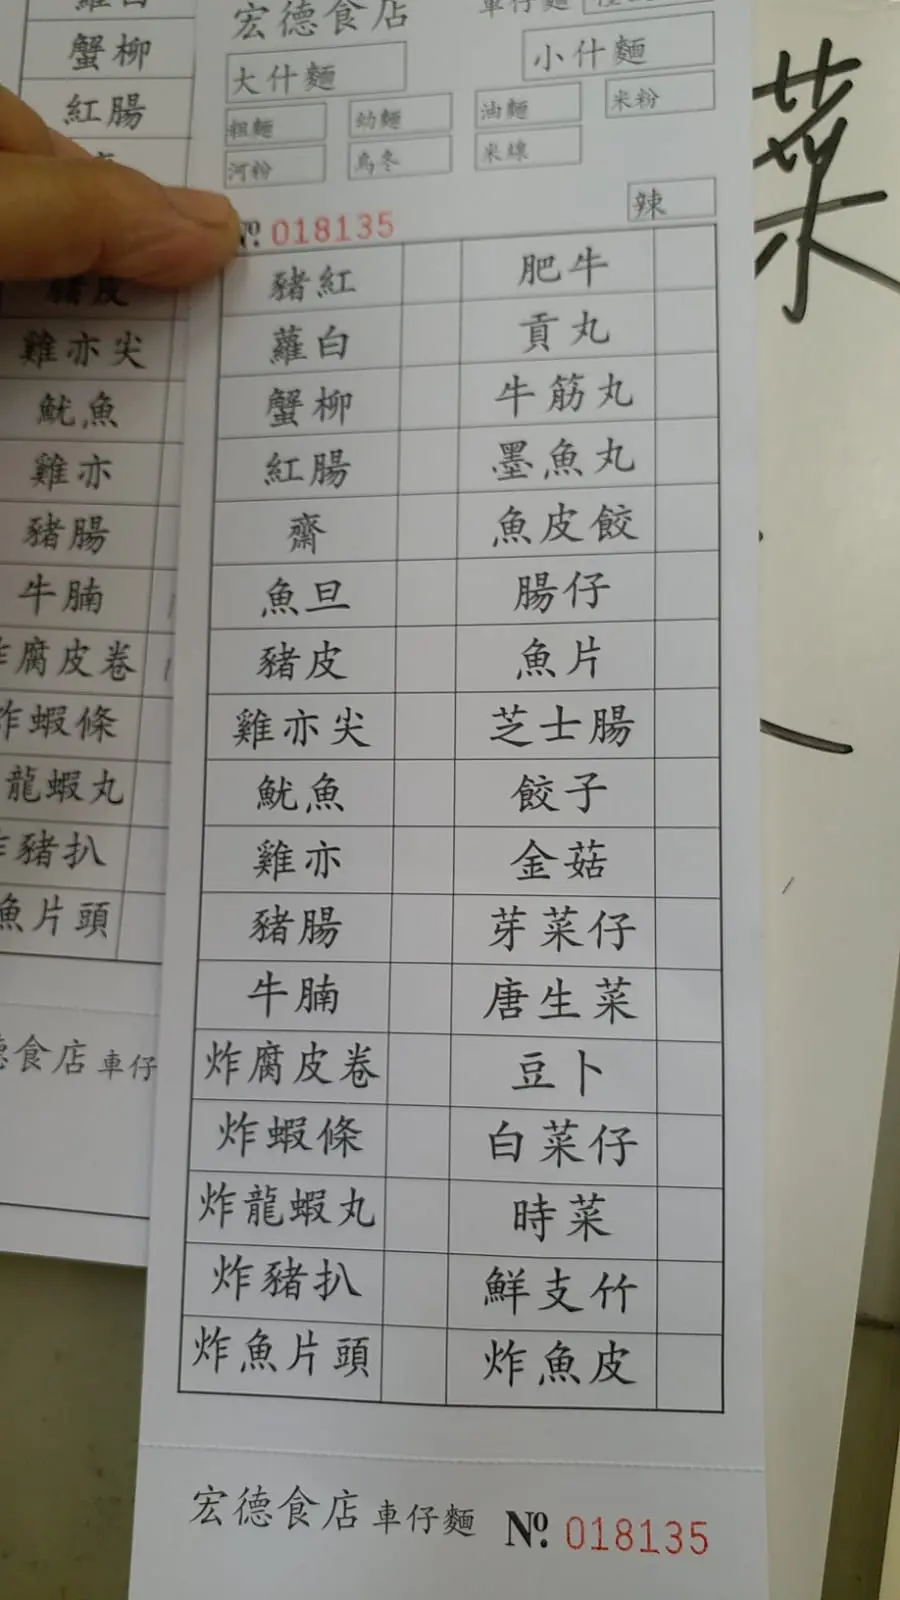 蟹柳
紅腸
豬皮
雞亦尖
魷魚
雞亦
豬腸
牛腩
炸腐皮卷
炸蝦條
龍蝦丸
炸豬扒
魚片頭
德食店 車仔
宏德食店 車仔麵
大什麵 小什麵
粗麵 幼麵 油麵 米粉
河粉 烏冬 米線
辣
№ 018135
豬紅 肥牛
蘿白 貢丸
蟹柳 牛筋丸
紅腸 墨魚丸
齋 魚皮餃
魚旦 腸仔
豬皮 魚片
雞亦尖 芝士腸
魷魚 餃子
雞亦 金菇
豬腸 芽菜仔
牛腩 唐生菜
炸腐皮卷 豆卜
炸蝦條 白菜仔
炸龍蝦丸 時菜
炸豬扒 鮮支竹
炸魚片頭 炸魚皮
宏德食店 車仔麵 № 018135
菜